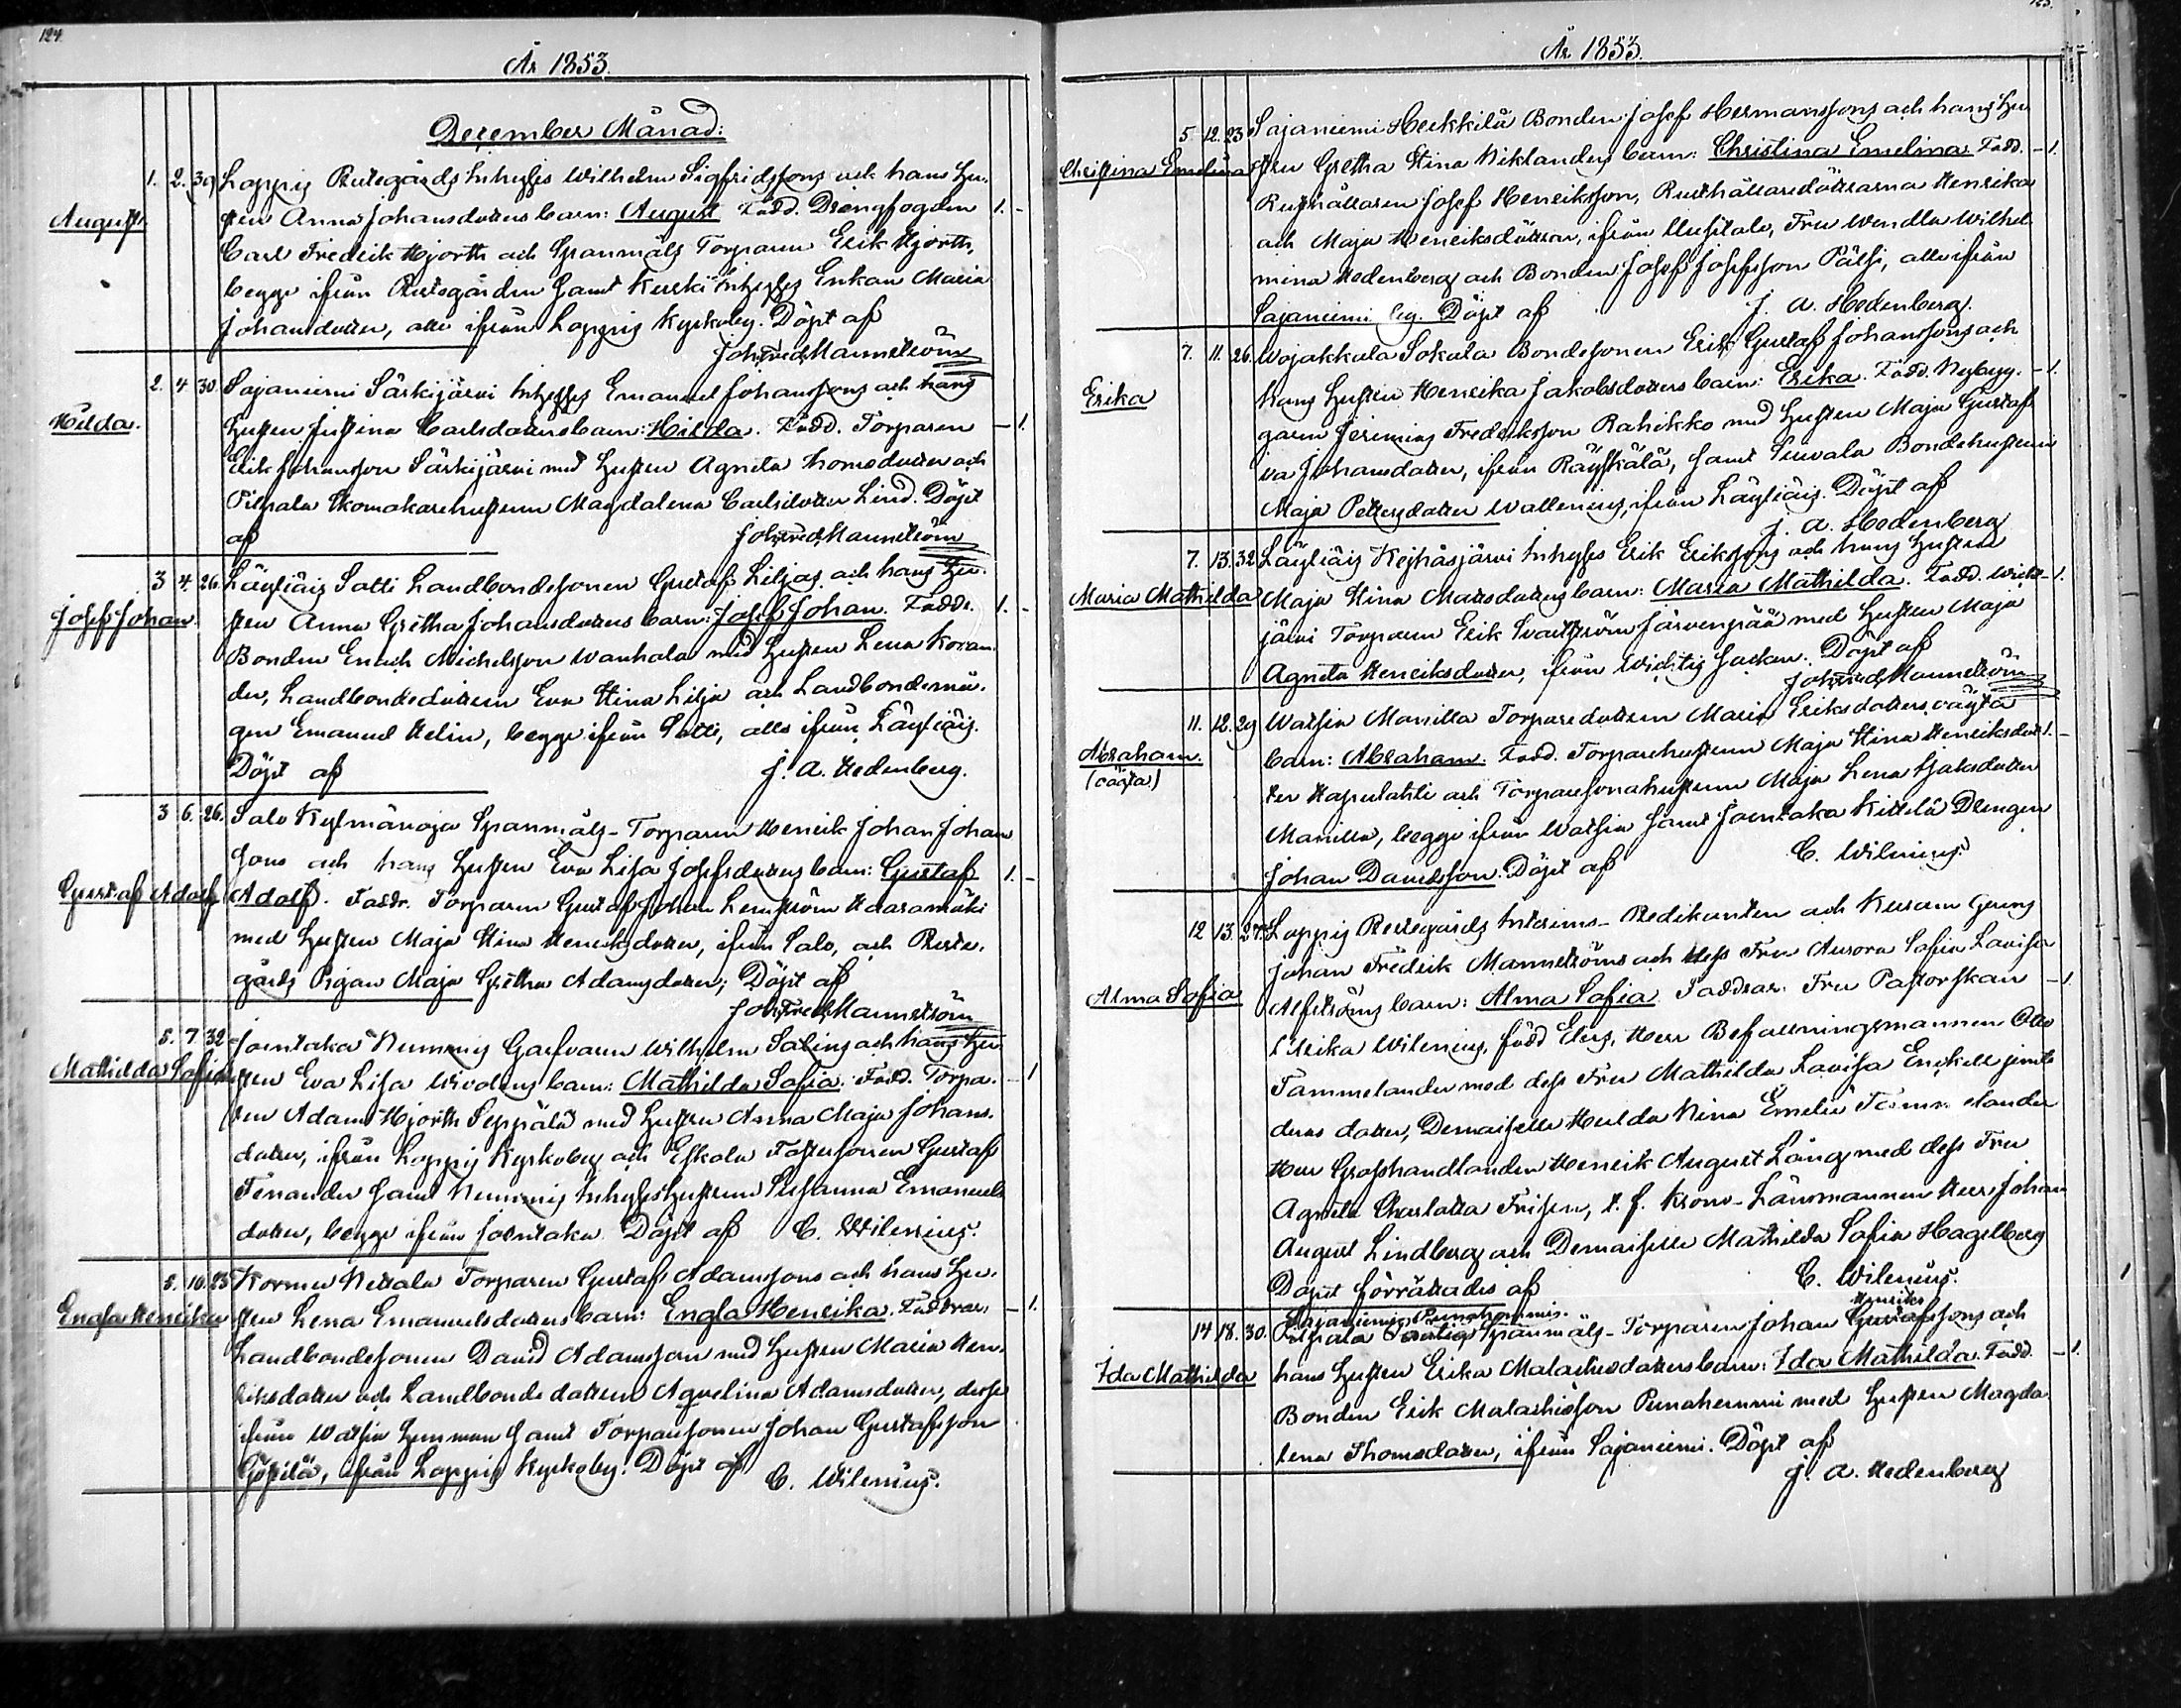 124.
År 1853.
December Månad:
1. 2. 39 Loppis Prestegårds Inhyses Wilhelm Sigfridssons och hans Hu-
August. stru Anna Johansdotters barn: August Fadd. Drängfogden 1. -
Carl Fredrik Hjorth och Spanmåls Torparen Erik Hjorth,
begge ifrån Prestegården samt Kurki Inhyses Enkan Maria
Johansdotter, alle ifrån Loppis Kyrkoby. Döpt af
Joh. Fred. Mannström
2. 4 30. Sajaniemi Särkijärvi Inhyses Emanuel Johanssons och hans
Hilda. Hustru Justina Carlsdotters barn: Hilda. Fadd. Torparen - 1.
Erik Johansson Särkijärvi med Hustru Agneta Thomsdotter och
Pilpala Skomakarehustrun Magdalena Carlsdotter Lind. Döpt
af Joh. Fred. Mannström
3 4. 26. Läyliäis Satti Landbondesonen Gustaf Liljas och hans Hu-
Josef Johan. stru Anna Gretha Johansdotters barn: Josef Johan. Fadd. 1. -
Bonden Enoch Michelsson Wanhala med Hustru Lena Koran-
der, Landbondedottern Eva Stina Lilja och Landbondemå-
gen Emanuel Helin, begge ifrån Satti, alle ifrån Läyliäis.
Döpt af J. A. Hedenberg.
3 6. 26. Salo Kylmänoja Spanmåls-Torparen Henrik Johan Johans
sons och hans Hustru Eva Lisa Josefsdotters barn: Gustaf 1. -
Gustaf Adolf Adolf. Faddr. Torparen Gustaf Johan Lernström Haaramäki
med Hustru Maja Stina Henriksdotter, ifrån Salo, och Preste-
gårds Pigan Maja Gretha Adamsdotter; Döpt af
Joh. Fred. Mannström
5. 7. 32 Joentaka Nummis Garfvaren Wilhelm Salins och hans Hu-
Mathilda Sofia stru Eva Lisa barn: Mathilda Sofia. Fadd. Torpa- - 1
ren Adam Hjorth Seppälä med Hustru Anna Maja Johans-
dotter, ifrån Loppis Kyrkoby och Eskola Fostersonen Gustaf
Tenander samt Nummis Inhyses Hustrun Susanna Emanuels
dotter, begge ifrån Joentaka. Döpt af C. Wilenius.
5. 10. 25 Kormu Torparen Gustaf Adamssons och hans Hu-
Engla Henrika stru Lena Emanuelsdotters barn: Engla Henrika. Faddrar, - 1.
Landbondesonen David Adamsson med Hustru Maria Hen-
riksdotter och Landbonde dottern Aqvelina Adamsdotter, desse
ifrån Watsia Hunman samt Torparesonen Johan Gustafsson
ifrån Loppis Kyrkoby. Döpt af C. Wilenius.
125.
År 1853.
5 12. 23 Sajaniemi Heikkilä Bonden Josef Hermanssons och hans Hu
Christina Emelina stru Gretha Stina Niklanders barn: Christina Emelina Fadd. - 1.
Rusthållaren Josef Henriksson, Rusthållaredöttrarna Henrika
och Maja Henriksdöttrar, ifrån Uusitalo, Fru Wendla Wilhel
mina Hedenberg och Bonden Josef Josefsson Pälsi, alle ifrån
Sajaniemi by. Döpt af J. A. Hedenberg.
7. 11. 26. Wojakkala Sokala Bondesonen Erik Gustaf Johanssons och
Erika hans Hustru Henrika Jakobsdotters barn: Erika. Fadd. Nybyg- - 1.
garen Jerimias Fredriksson Rahikko med Hustru Maja Gustaf
va Johansdotter, ifrån Räyskälä, samt Bondehustrun
Maja Pettersdotter Wallenius, ifrån Läyliäis. Döpt af
J. A. Hedenberg
7. 13. 32 Läyliäis Kejhäsjärvi Inhyses Erik Erikssons och hans Hustru
Maria Mathilda Maja Stina Matsdotters barn: Maria Mathilda. Fadd. - 1.
järvi Torparen Erik Järvenpää med Hustru Maja
Agneta Henriksdotter, ifrån Wichtis Socken. Döpt af
Joh. Fred. Mannström
11. 12. 29 Watsia Manilla Torparedottern Maria Eriksdotters oägta
Abraham. barn: Abraham. Fadd. Torparehustrun Maja Stina Henriksdot- 1. -
(oägta) ter Hapulahti och Torparesonahustrun Maja Lena Isaksdotter
Manilla, begge ifrån Watsia samt Joentaka Kittilä Drengen
Johan Davidsson. Döpt af C. Wilenius.
12 13. 27. Loppis Prestegårds Interims-Predikanten och Herr
Johan Fredrik Mannströms och dess Fru Aurora Sofia Lovisa
Alma Sofia Alfströms barn: Alma Sofia. Faddrar. Fru Pastorskan - 1
Ulrika Wilenius, född Elers, Herr Befallningsmannen Otto
Tammelander med dess Fru Mathilda Lovisa Enckell jemte
deras dotter, Demoiselle Hulda Nina Emelie Tammelander
Herr Grosshandlanden Henrik August Lång med dess Fru
Agneta Charlotta Frisen, t. f. Krono-Länsmannen Herr Johan
August Lindberg och Demoiselle Mathilda Sofia Hagelberg
Dopet förrättades af C. Wilenius.
Sajaniemis Punahommis. Henriks
14 18. 30. Pilpala Spanmåls-Torparen Johan Gustafssons och
Ida Mathilda hans Hustru Erika Malachiedotters barn: Ida Mathilda. Fadd. - 1.
Bonden Erik Malachiesson Punahemmi med Hustru Magda
lena Thomsdotter, ifrån Sajaniemi. Döpt af
J. A. Hedenberg